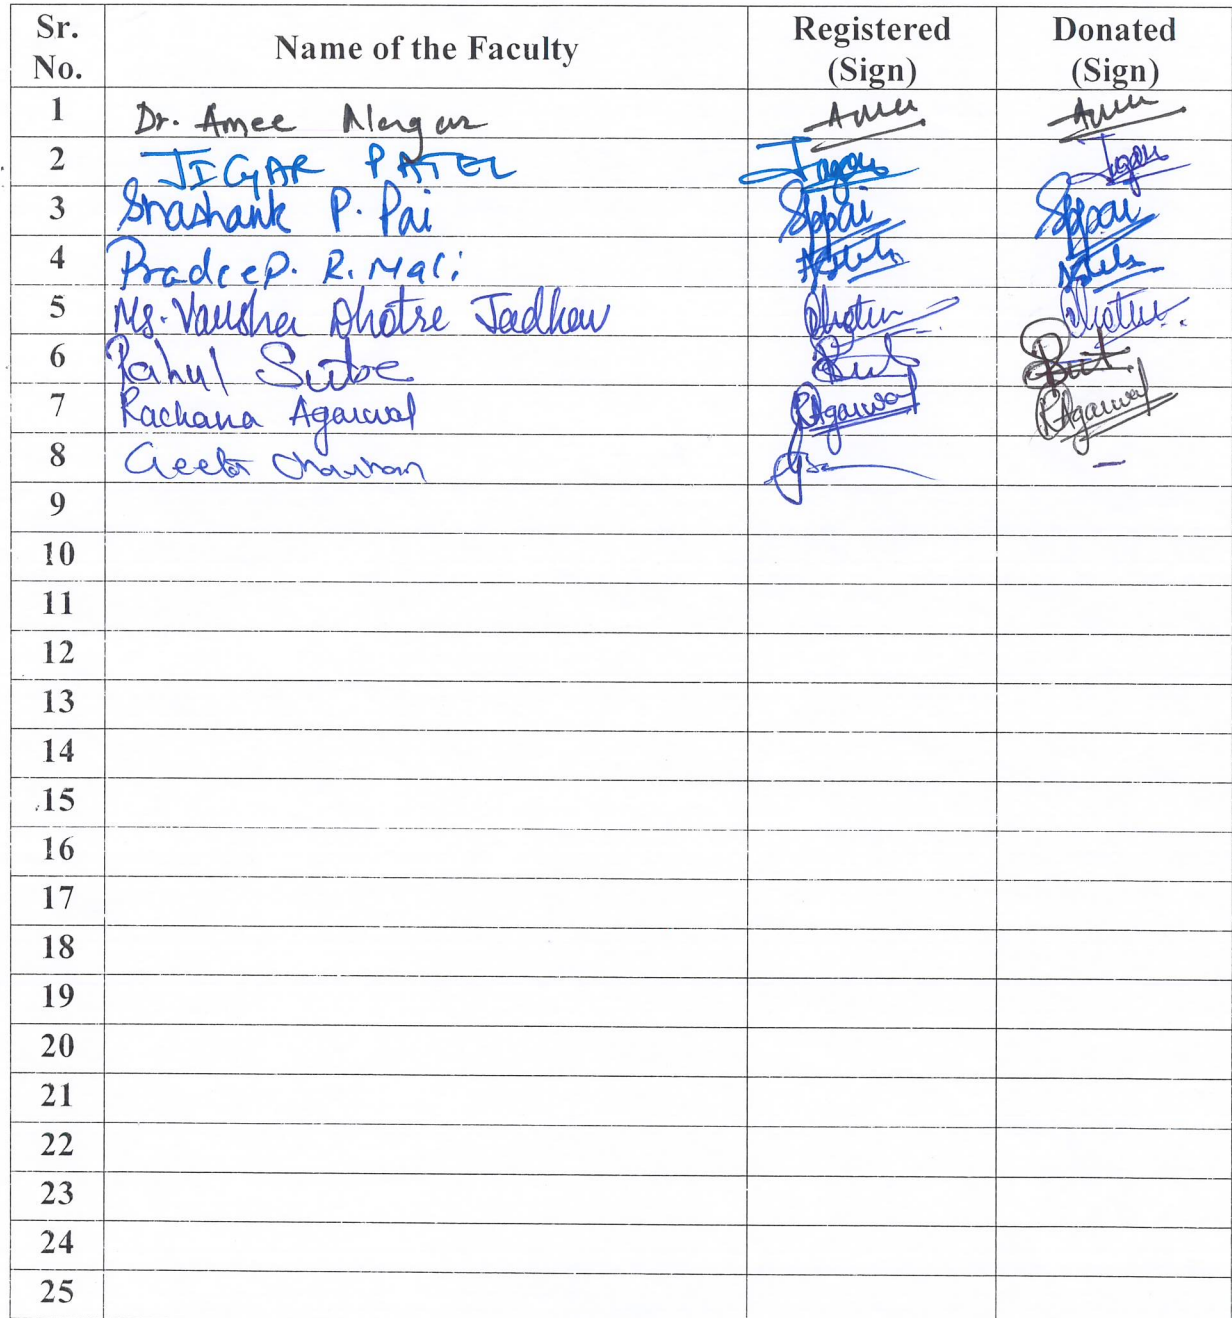 Sr. No. Name of the Faculty Registered (Sign) Donated (Sign)
1 Dr. Amee
2 JIGAR PATEL Jigar Jigar
3 Shashank P. Pai SPPai SPPai
4 Pradeep. R. Mali
5 Ms. Varsha Dhotre Jadhav Dhotre Dhotre
6 Rahul
7 Rachana Agarwal RAgarwal RAgarwal
8 Geeta Chauhan –
9
10
11
12
13
14
15
16
17
18
19
20
21
22
23
24
25